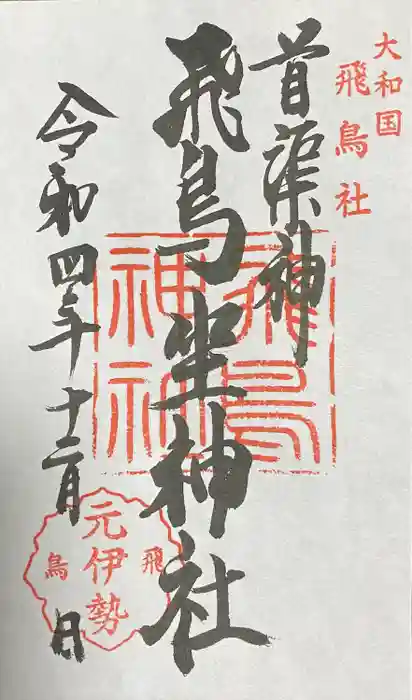 大和国
飛鳥社
首渠神
飛鳥坐神社
令和四年十二月 日
飛鳥
神社
元伊勢
飛鳥